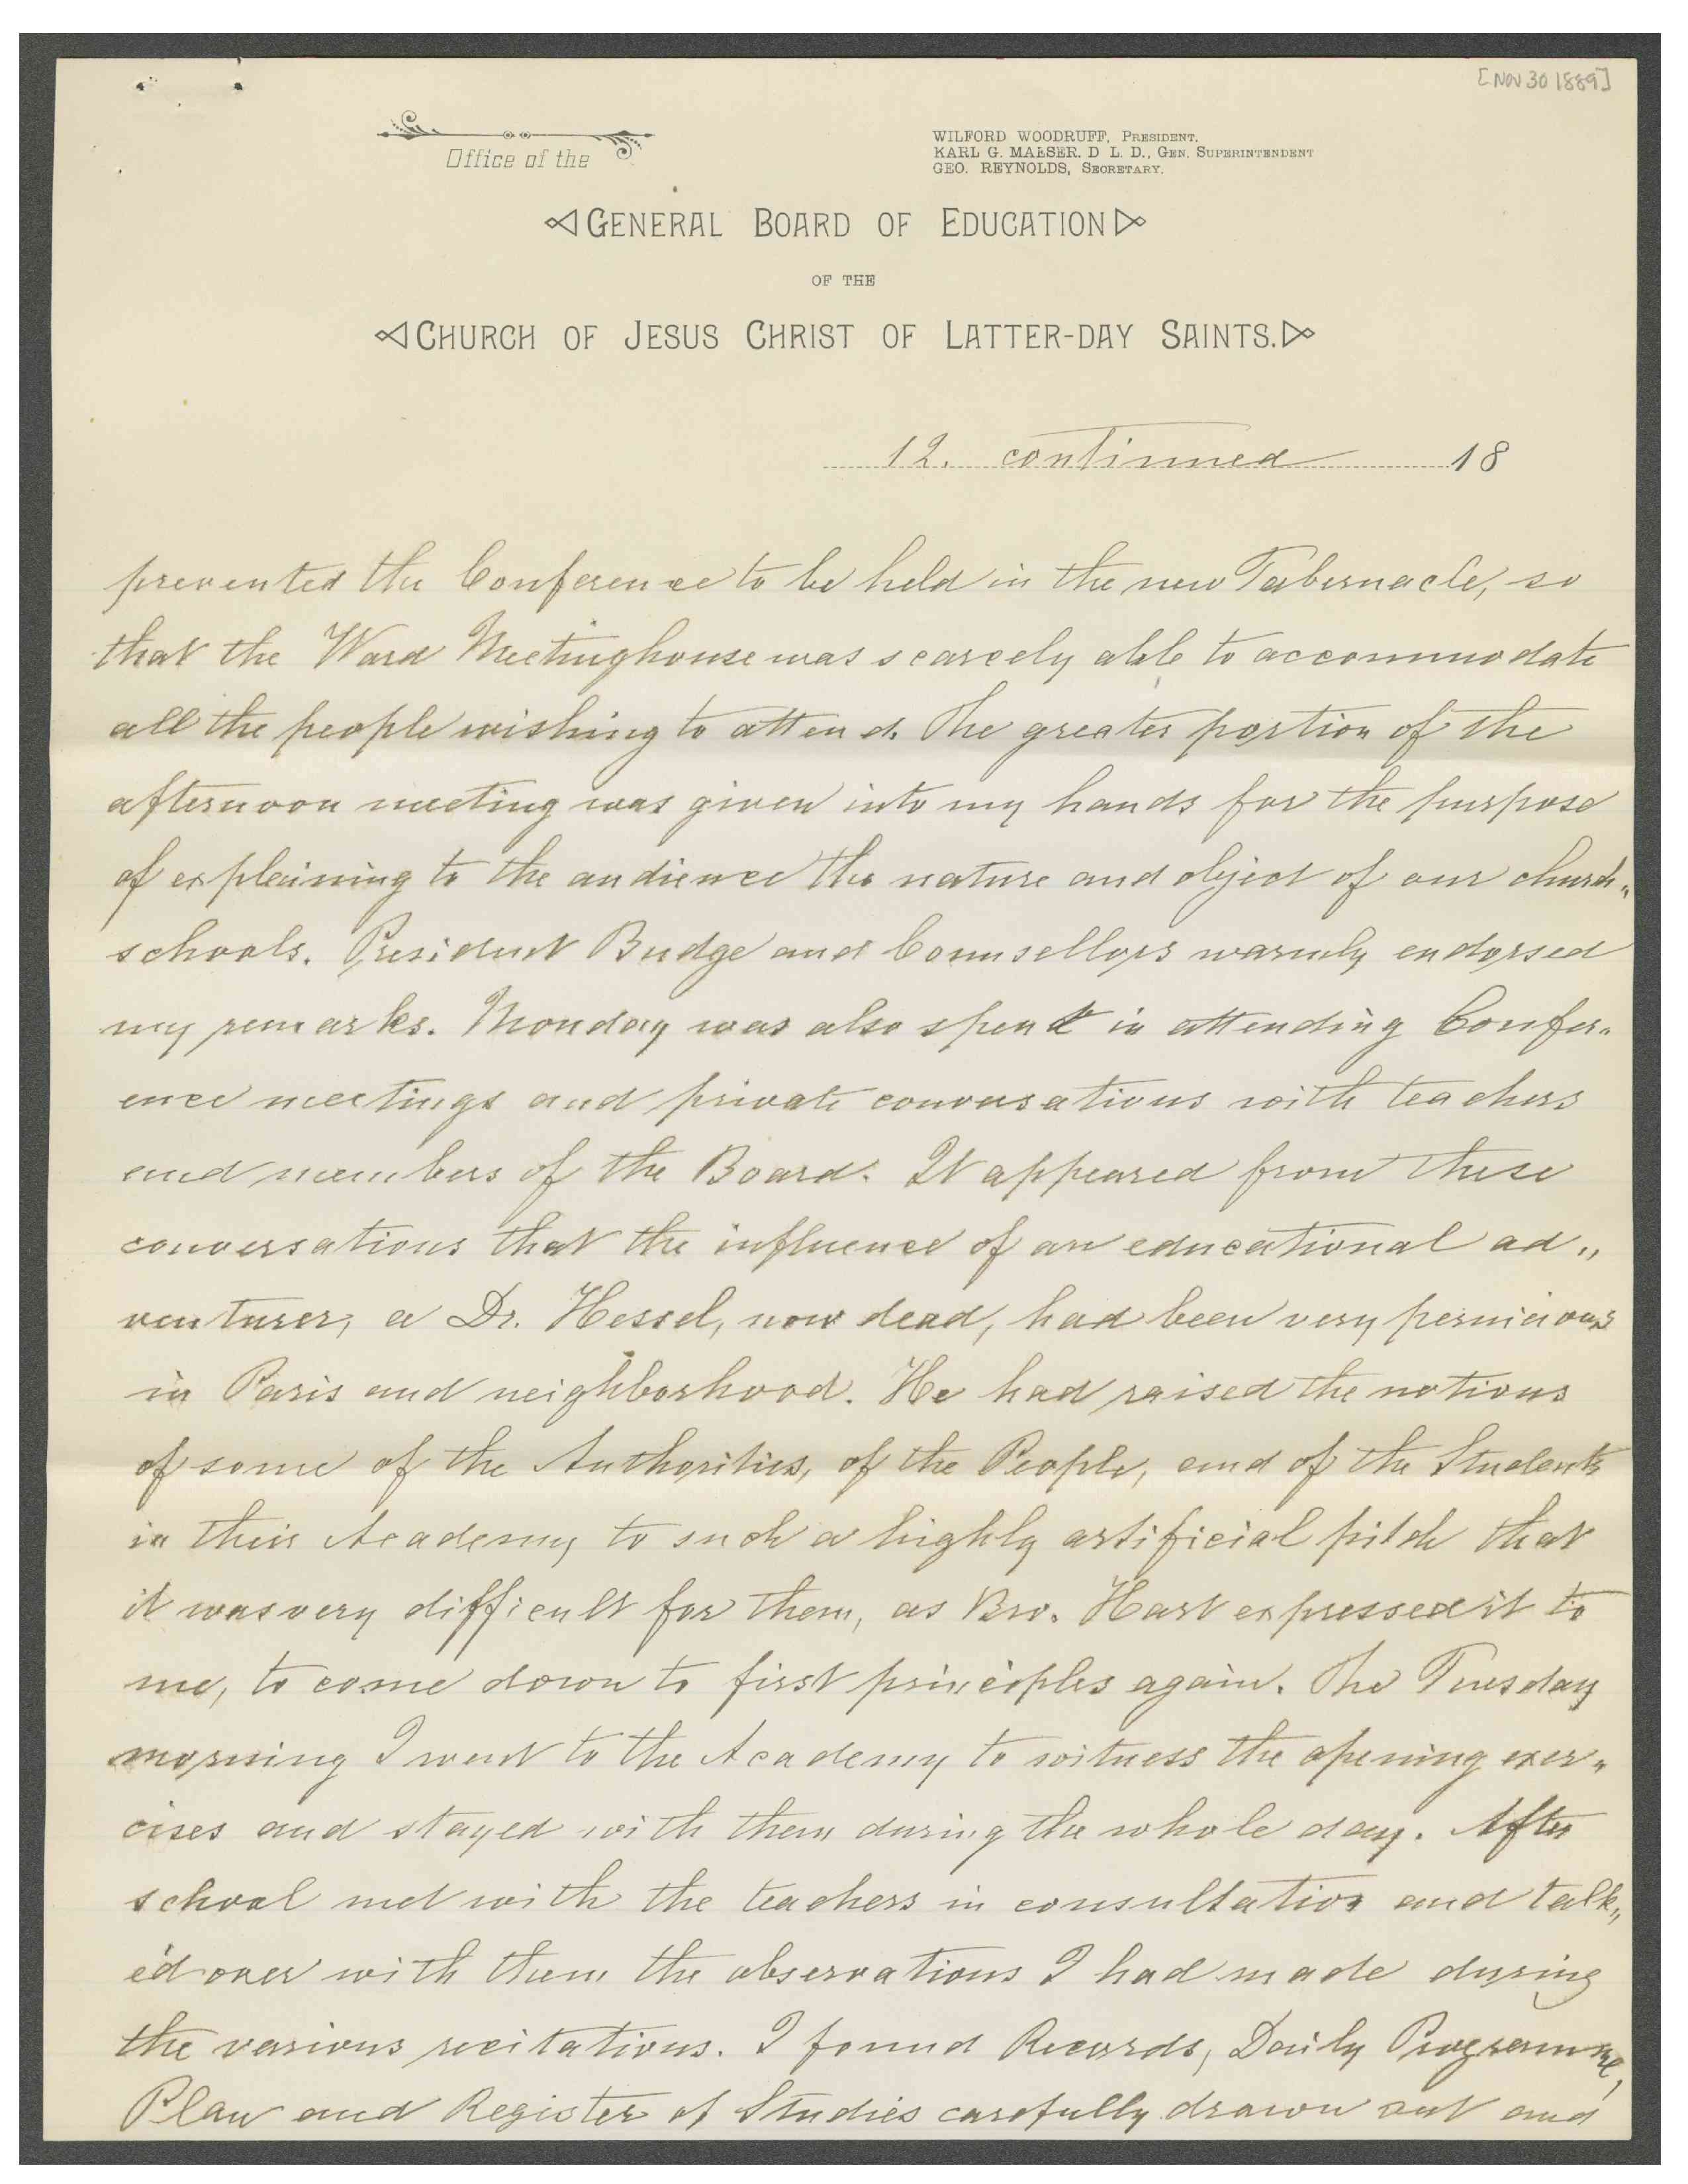 [NOV 30 1889]
Office of the
WILFORD WOODRUFF, PRESIDENT.
KARL G. MAESER. D L. D., GEN. SUPERINTENDENT
GEO. REYNOLDS, SECRETARY.
GENERAL BOARD OF EDUCATION
OF THE
CHURCH OF JESUS CHRIST OF LATTER-DAY SAINTS.
12. continued 18
prevented the Conference to be held in the new Tabernacle, so
that the Ward Meetinghouse was scarcely able to accommodate
all the people wishing to attend. The greater portion of the
afternoon meeting was given into my hands for the purpose
of explaining to the audience the nature and object of our church„
schools. President Budge and Counsellors warmly endorsed
my remarks. Monday was also spent in attending Confer„
ence meetings and private conversations with teachers
and members of the Board. It appeared from these
conversations that the influence of an educational ad„
venturer, a Dr. Hessel, now dead, had been very pernicious
in Paris and neighborhood. He had raised the notions
of some of the Authorities, of the People, and of the Students
in their Academy to such a highly artificial pitch that
it was very difficult for them, as Bro. Hart expressed it to
me, to come down to first principles again. The Tuesday
morning I went to the Academy to witness the opening exer„
cises and stayed with them during the whole day. After
school met with the teachers in consultation and talk„
ed over with them the observations I had made during
the various recitations. I found Records, Daily Programme,
Plan and Register of Studies carefully drawn out and